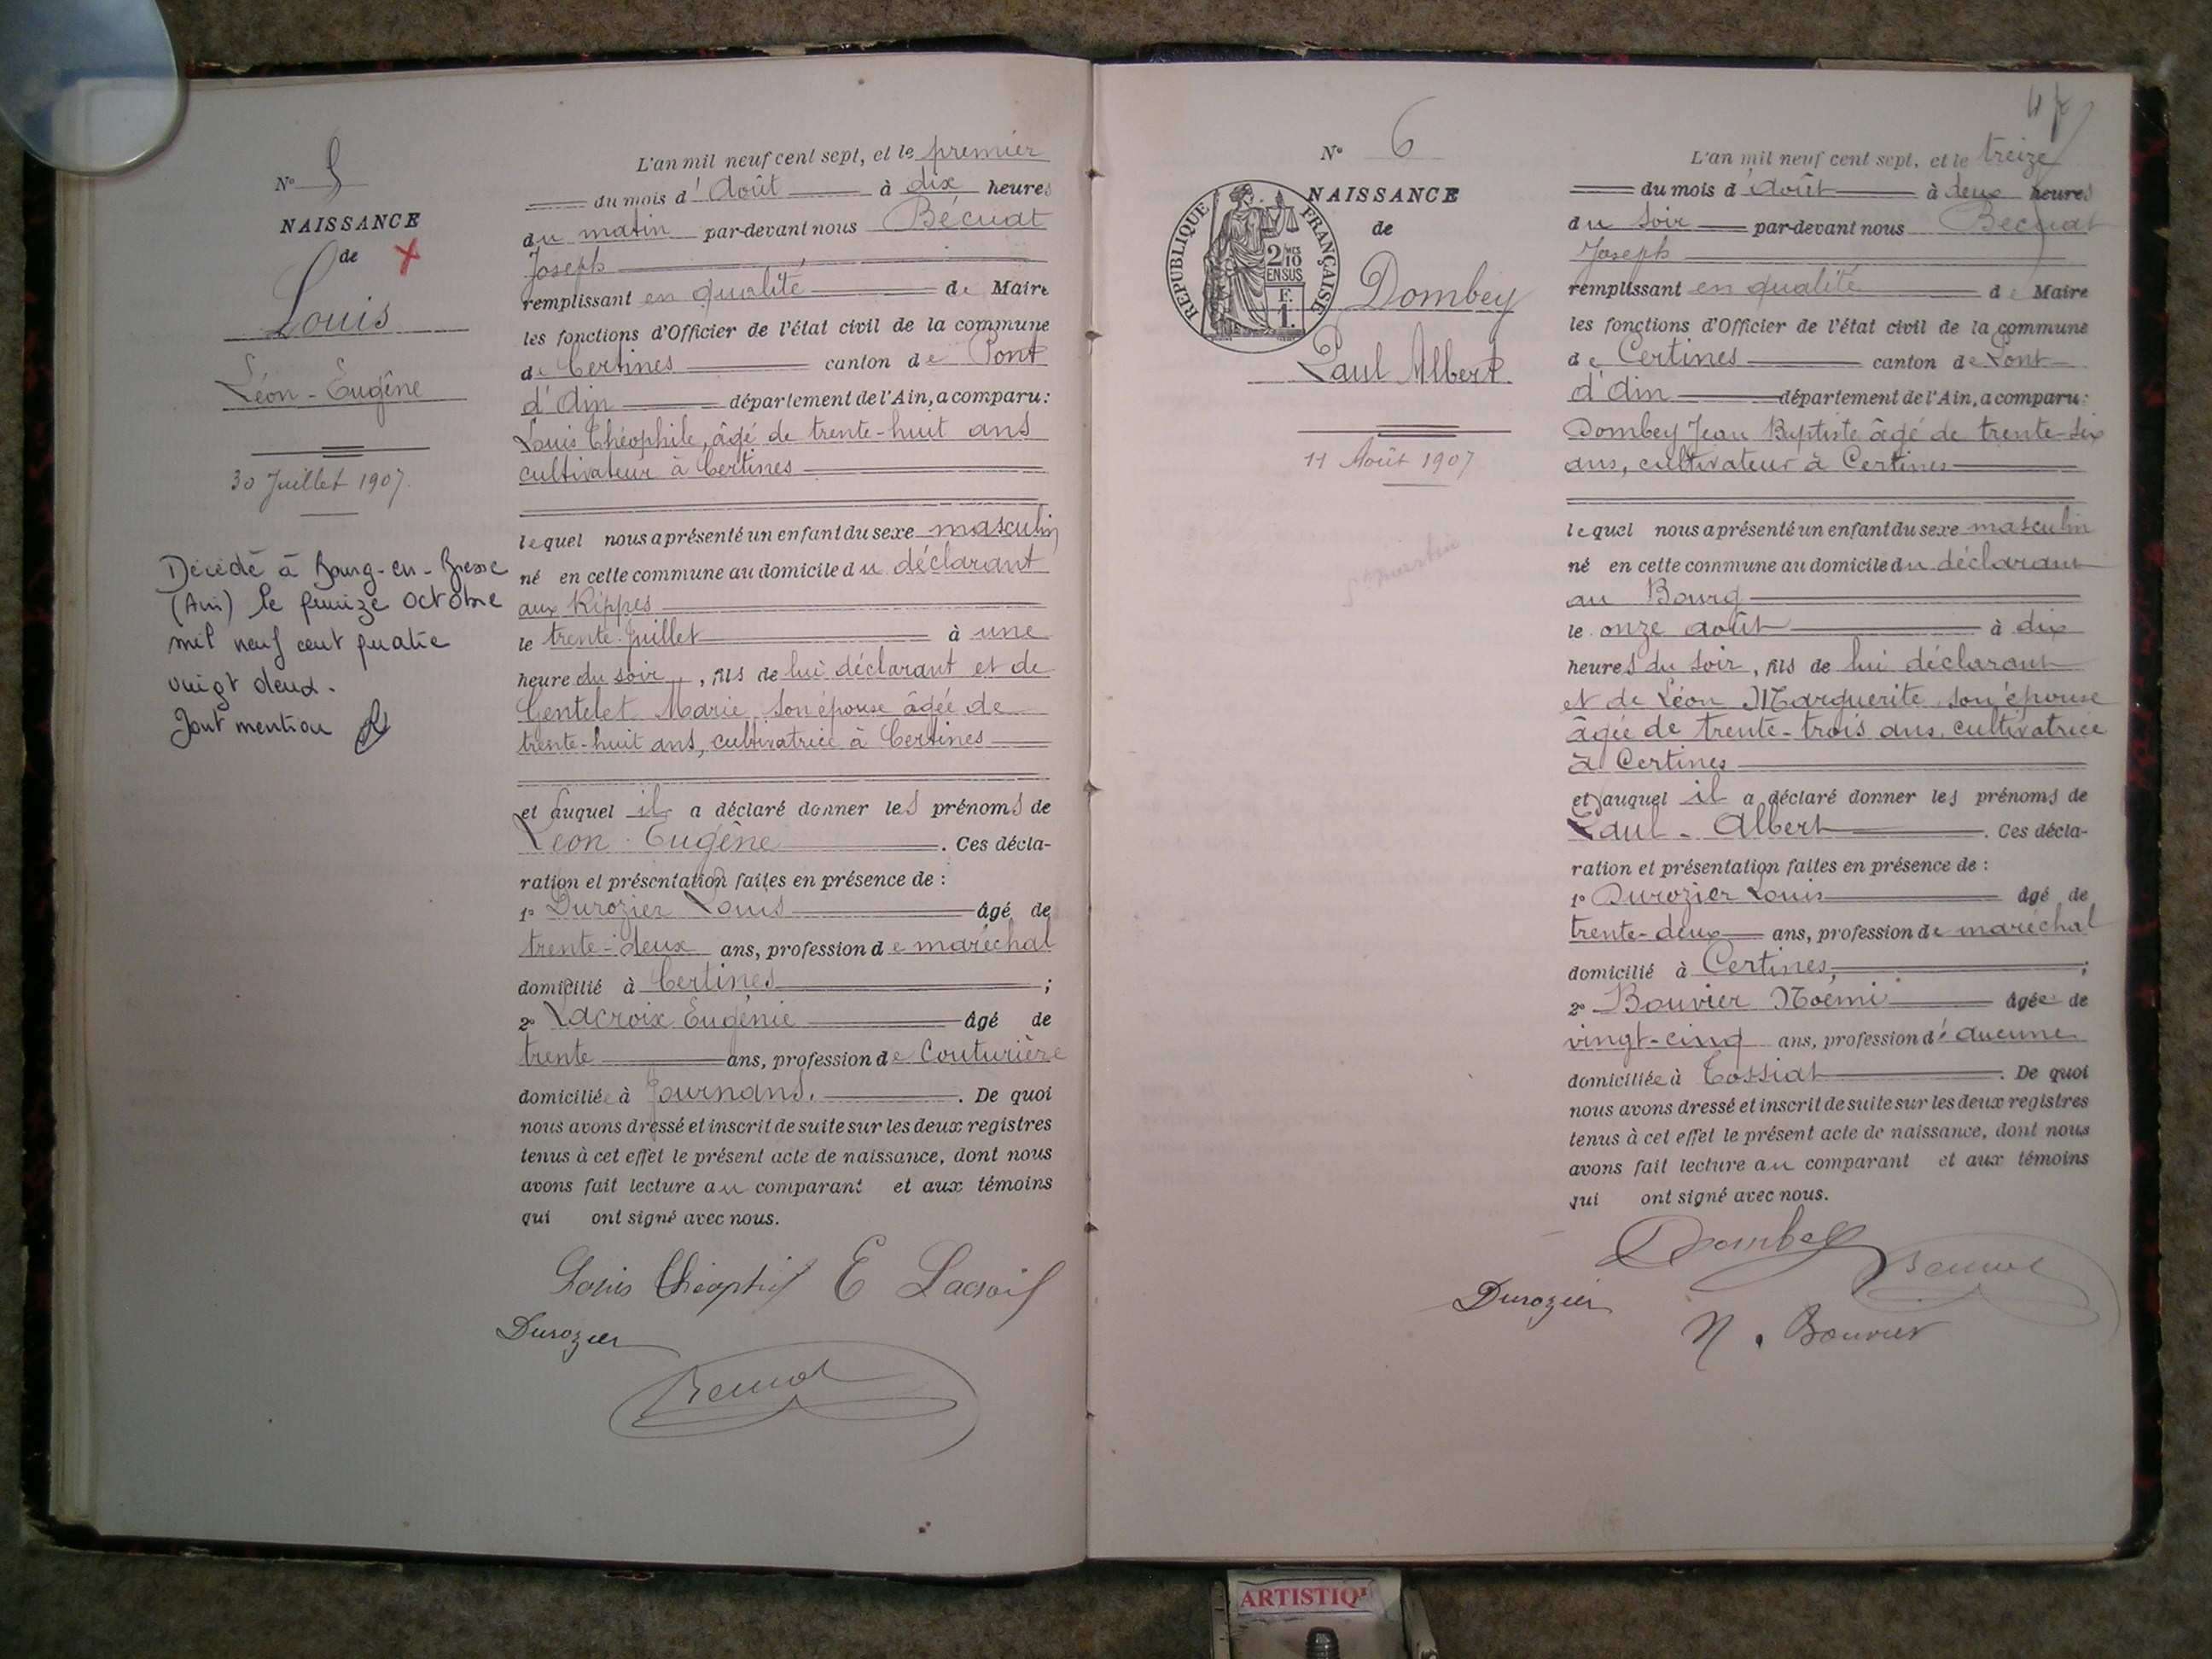 N° 5
NAISSANCE
de
Louis
Léon-Eugène
30 Juillet 1907.
Décédé à Bourg-en-Bresse
(Ain) le quinze octobre
mil neuf cent quatre
vingt deux.
Dont mention
L'an mil neuf cent sept, et le premier
du mois d'Août à dix heures
du matin par-devant nous Bécuat
Joseph
remplissant en qualité de Maire
les fonctions d'Officier de l'état civil de la commune
de Certines canton de Pont
d'Ain département de l'Ain, a comparu:
Louis Théophile, âgé de trente-huit ans
cultivateur à Certines
lequel nous a présenté un enfant du sexe masculin
né en cette commune au domicile du déclarant
aux Rippes
le trente Juillet à une
heure du soir, fils de lui déclarant et de
Gentelet Marie son épouse âgée de
trente-huit ans, cultivatrice à Certines
et auquel il a déclaré donner les prénoms de
Léon-Eugène. Ces décla-
ration et présentation faites en présence de :
1° Durozier Louis âgé de
trente-deux ans, profession de maréchal
domicilié à Certines ;
2° Lacroix Eugénie âgé de
trente ans, profession de Couturière
domiciliée à Journans. . De quoi
nous avons dressé et inscrit de suite sur les deux registres
tenus à cet effet le présent acte de naissance, dont nous
avons fait lecture au comparant et aux témoins
qui ont signé avec nous.
Louis Théophile E Lacroix
Durozier
Bécuat
47
N° 6
NAISSANCE
de
REPUBLIQUE FRANÇAISE
2/10 EN SUS
F. 1.
Dombey
Paul Albert
11 Août 1907
L'an mil neuf cent sept, et le treize
du mois d'août à deux heures
du soir par-devant nous Bécuat
Joseph
remplissant en qualité de Maire
les fonctions d'Officier de l'état civil de la commune
de Certines canton de Pont
d'Ain département de l'Ain, a comparu:
Dombey Jean Baptiste âgé de trente-six
ans, cultivateur à Certines
lequel nous a présenté un enfant du sexe masculin
né en cette commune au domicile du déclarant
au Bourg
le onze août à dix
heures du soir, fils de lui déclarant
et de Léon Marguerite son épouse
âgée de trente-trois ans, cultivatrice
à Certines
et auquel il a déclaré donner les prénoms de
Paul-Albert. Ces décla-
ration et présentation faites en présence de :
1° Durozier Louis âgé de
trente-deux ans, profession de maréchal
domicilié à Certines, ;
2° Bouvier Noémi âgée de
vingt-cinq ans, profession d'aucune
domiciliée à Tossiat. De quoi
nous avons dressé et inscrit de suite sur les deux registres
tenus à cet effet le présent acte de naissance, dont nous
avons fait lecture au comparant et aux témoins
qui ont signé avec nous.
Dombey
Bécuat
Durozier
N. Bouvier
ARTISTIQ